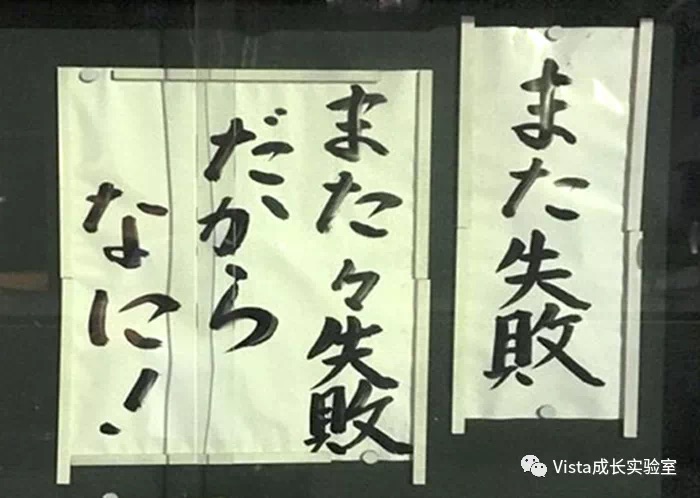 また失敗
また々失敗
だから
なに!
Vista成长实验室